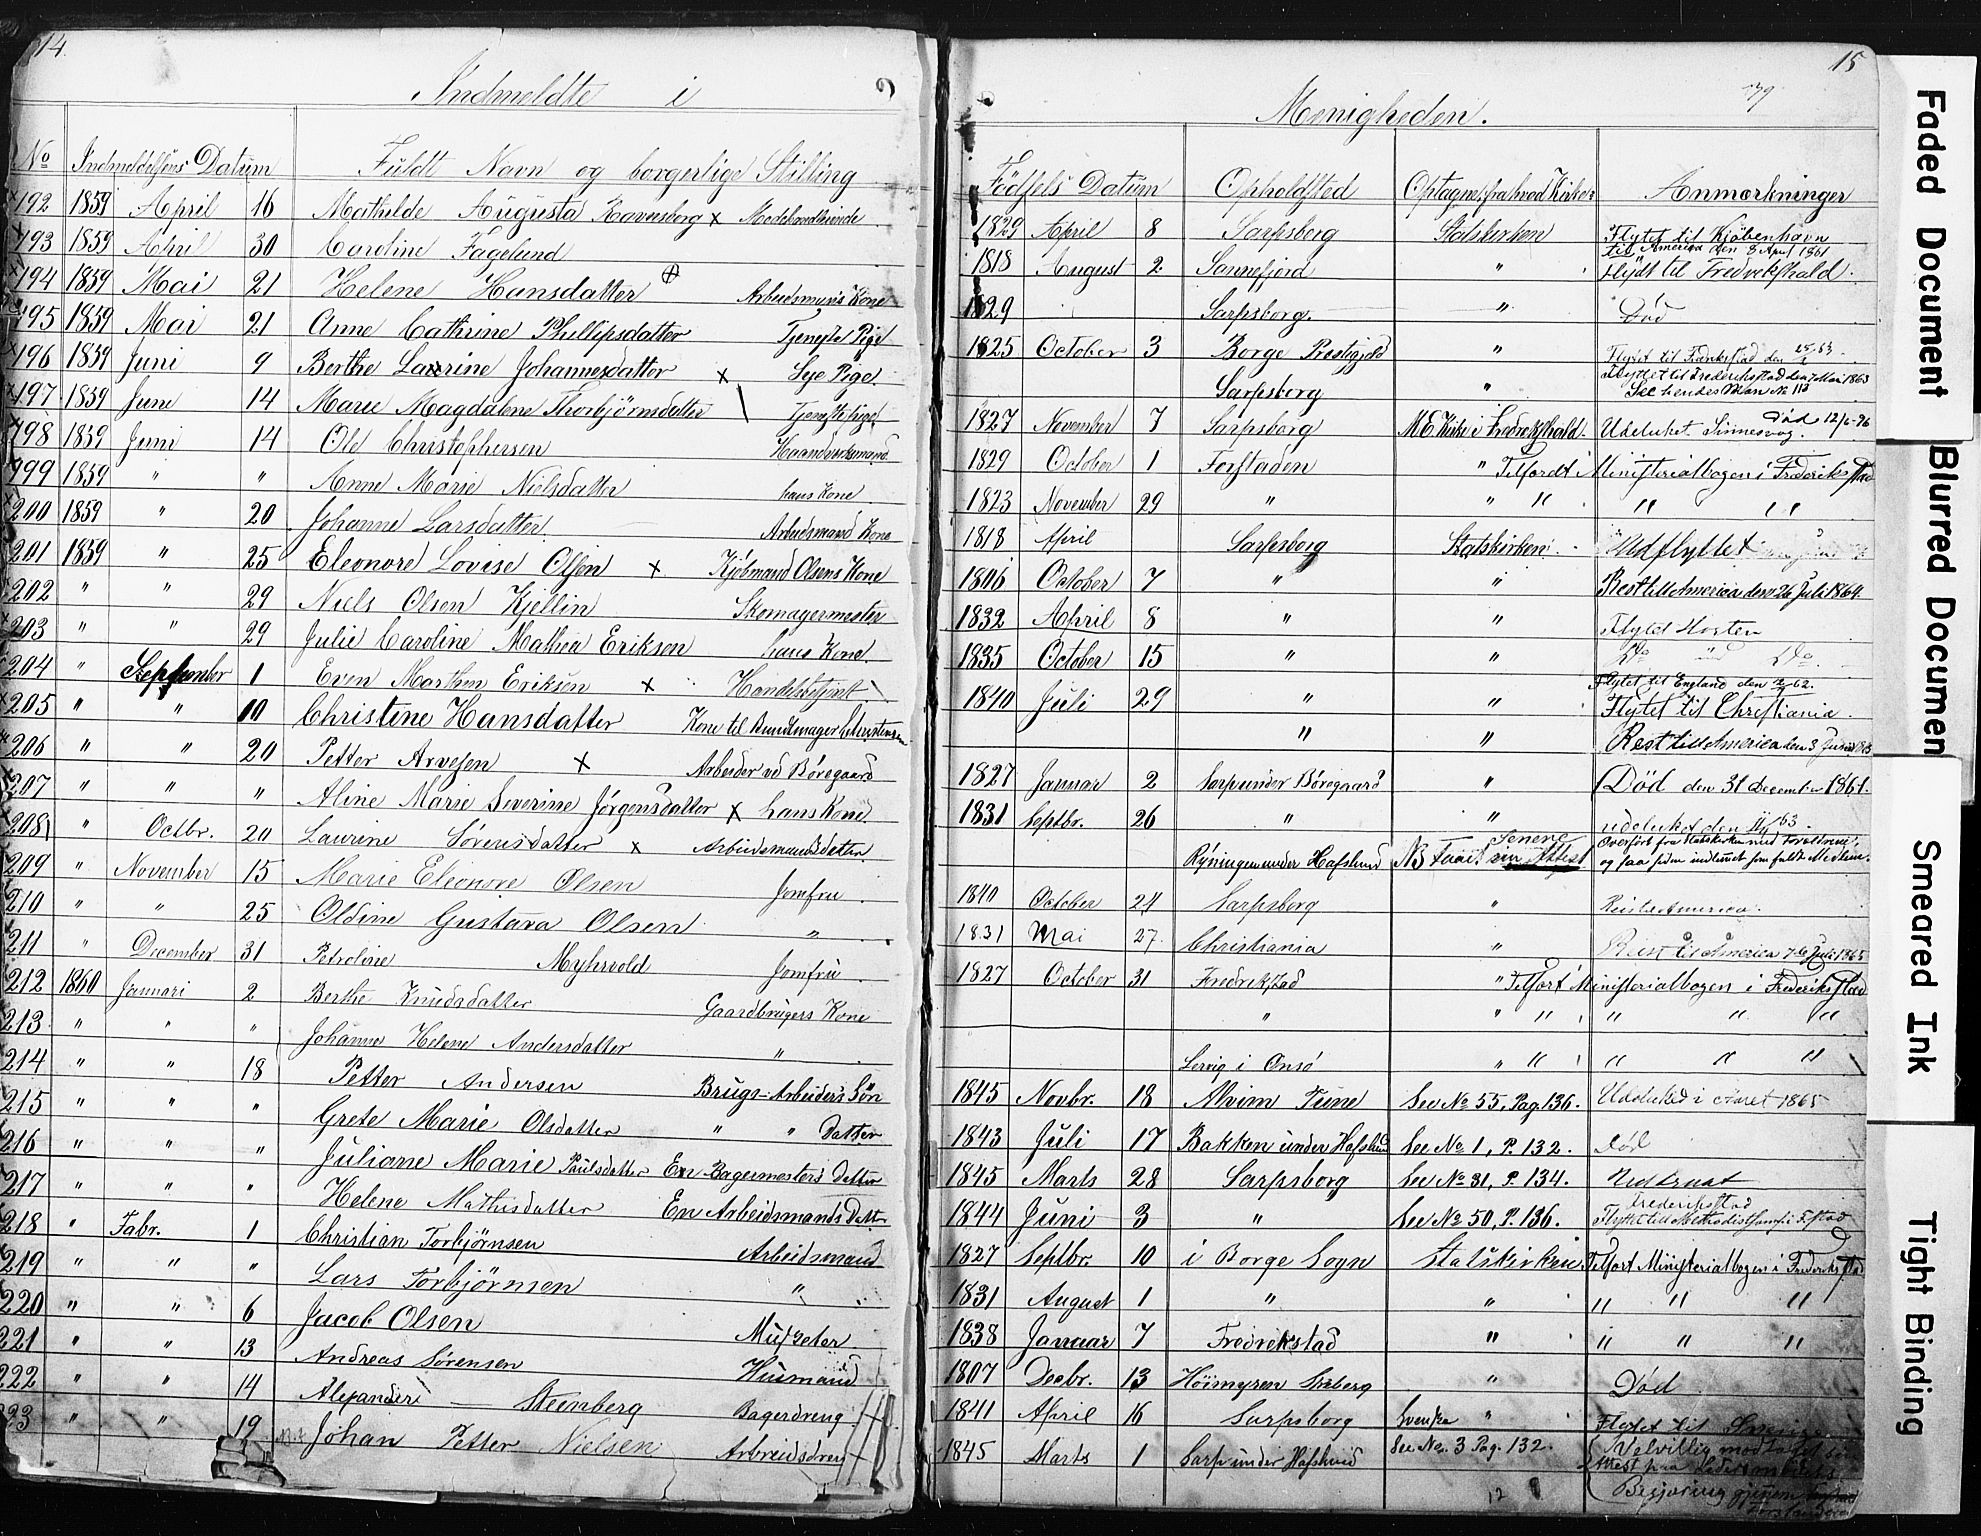 14.
Indmeldte i
No Indmeldelsens Datum Fuldt Navn og borgerlige Stilling
192 1859 April 16 Mathilde Augusta Haversborg x Modehandlerinde
193 1859 April 30 Caroline Fagelund
194 1859 Mai 21 Helene Hansdatter Arbeidsmans Kone
195 1859 Mai 21 Anne Cathrine Phillipsdatter Tjeneste Pige
196 1859 Juni 9 Berthe Laurine Johannesdatter x Sye Pige
197 1859 June 14 Marie Magdalene Thorbjörnsdatter Tjenestepige
198 1859 Juni 14 Ole Christophersen Haandverksmand
199 1859 " " Anne Marie Nielsdatter hans Kone
200 1859 " 20 Johanne Larsdatter Arbeidsmand Kone
201 1859 " 25 Eleonore Lovise Olsen x Kjöbmand Olsens Kone
202 " " 29 Niels Olsen Kjellin Skomagermester
203 " " 29 Julie Caroline Mathea Eriksen hans Kone
204 " September 1 Even Marthin Eriksen x Handelsbetjent
205 " " 10 Christine Hansdatter Kone til Bundtmager Christensen
206 " " 20 Petter Arvesen x Arbeider vd Böregaard
207 " " " Aline Marie Severine Jörgensdatter x hans Kone
208 " Octbr. 20 Laurine Sörensdatter x Arbeidsmandsdatter
209 " November 15 Marie Eleonore Olsen Jomfru
210 " " 25 Oldine Gustava Olsen "
211 " December 31 Petroline Myhrvold Jomfru
212 1860 Januari 2 Berthe Knudsdatter Gaardbrugers Kone
213 " " " Johanne Helene Andersdatter "
214 " " 18 Petter Andersen Brugs-Arbeiders Sön
215 " " " Grete Marie Olsdatter " " Datter
216 " " " Juliane Marie Paulsdatter En Bagermesters Datter
217 " " " Helene Mathisdatter En Arbeidsmands Datter
218 " Fabr. 1 Christian Torbjörnsen Arbeidsmand
219 " " " Lars Torbjörnsen "
220 " " 6 Jacob Olsen
221 " " 13 Andreas Sörensen Husmand
222 " " 14 Alexander Steenberg Bagerdreng
223 " " 19 Johan Petter Nielsen Arbeidsdreng
15
Menigheden.
Födsels Datum Opholdsted Optagne fra hvad Kirke Anmærkninger
1829 April 8 Sarpsborg Statskirken Flytet til Kjöbenhavn
til America den 8 April 1861
1818 August 2 Sannefjord " flydt til Fredrikshald.
1829 Sarpsborg. " Död
1825 October 3 Borge Prestegjeld " Flytet til Fredrikstad den
Flyttet til Frederikstad den 7 Mai 1863
Sarpsborg " See hendes Man No 113
1827 November 7 Sarpsborg M E Kirke i Fredrikshald. Udelukct. Död 12/6-76
1829 October 1 Forstaden " Telfördt i Ministerialbogen i Frederikstad
1823 November 29 " " " " "
1818 April Sarpsborg Statskirken Udflyttet
1806 October 7 " " Rest till America den 26 Juli 1864.
1832 April 8 " " Flytet Horten
1835 October 15 " " Do Do.
Flytet til England den 62.
1840 Juli 29 " " Flytet til Christiania.
" " Rest till America den 3
1827 Januar 2 Sarp under Böregaard " Död den 31 December 1861.
1831 Septbr. 26 " " udelukct den 63.
Ryningen under Hafslund NB Senere Attest Overfört fra Statskirken med Foreldrene, og saa
1840 October 24 Sarpsborg " Reist America.
1831 Mai 27 Christiania " Reist til America Juli 1865
1827 October 31 Fredrikstad " Telfört Ministerialbogen i Frederikstad
" " " " " "
Lervig i Onsö " " " " "
1845 Novbr. 18 Alvim Tune See No 55, Pag. 136. Udelukct i Aaret 1865
1843 Juli 17 Bakken under Hafslund See No 1, P. 132. Död
1845 Marts 28 Sarpsborg See No 31, P. 134. Udtraat
1844 Juni 3 " See No 50, P. 136. Frederikstad
Flyttet till Methodistsamf. i F.stad
1827 Septbr. 10 i Borge Sogn Statskirken Telfört Ministerialbogen i Frederikstad
1831 August 1 " " " " "
1838 Januar 7 Fredrekstad " " " "
1807 Decbr. 13 Höimyren Skeberg " Död
1841 April 16 Sarpsborg Svenska " Flytet til
1845 Marts 1 Sarp under Hafslund See No. 3 Pag. 132. Velvillig modtaget
Attest paa
Begjæring gjennem
12
Faded Document
Blurred Document
Smeared Ink
Tight Binding